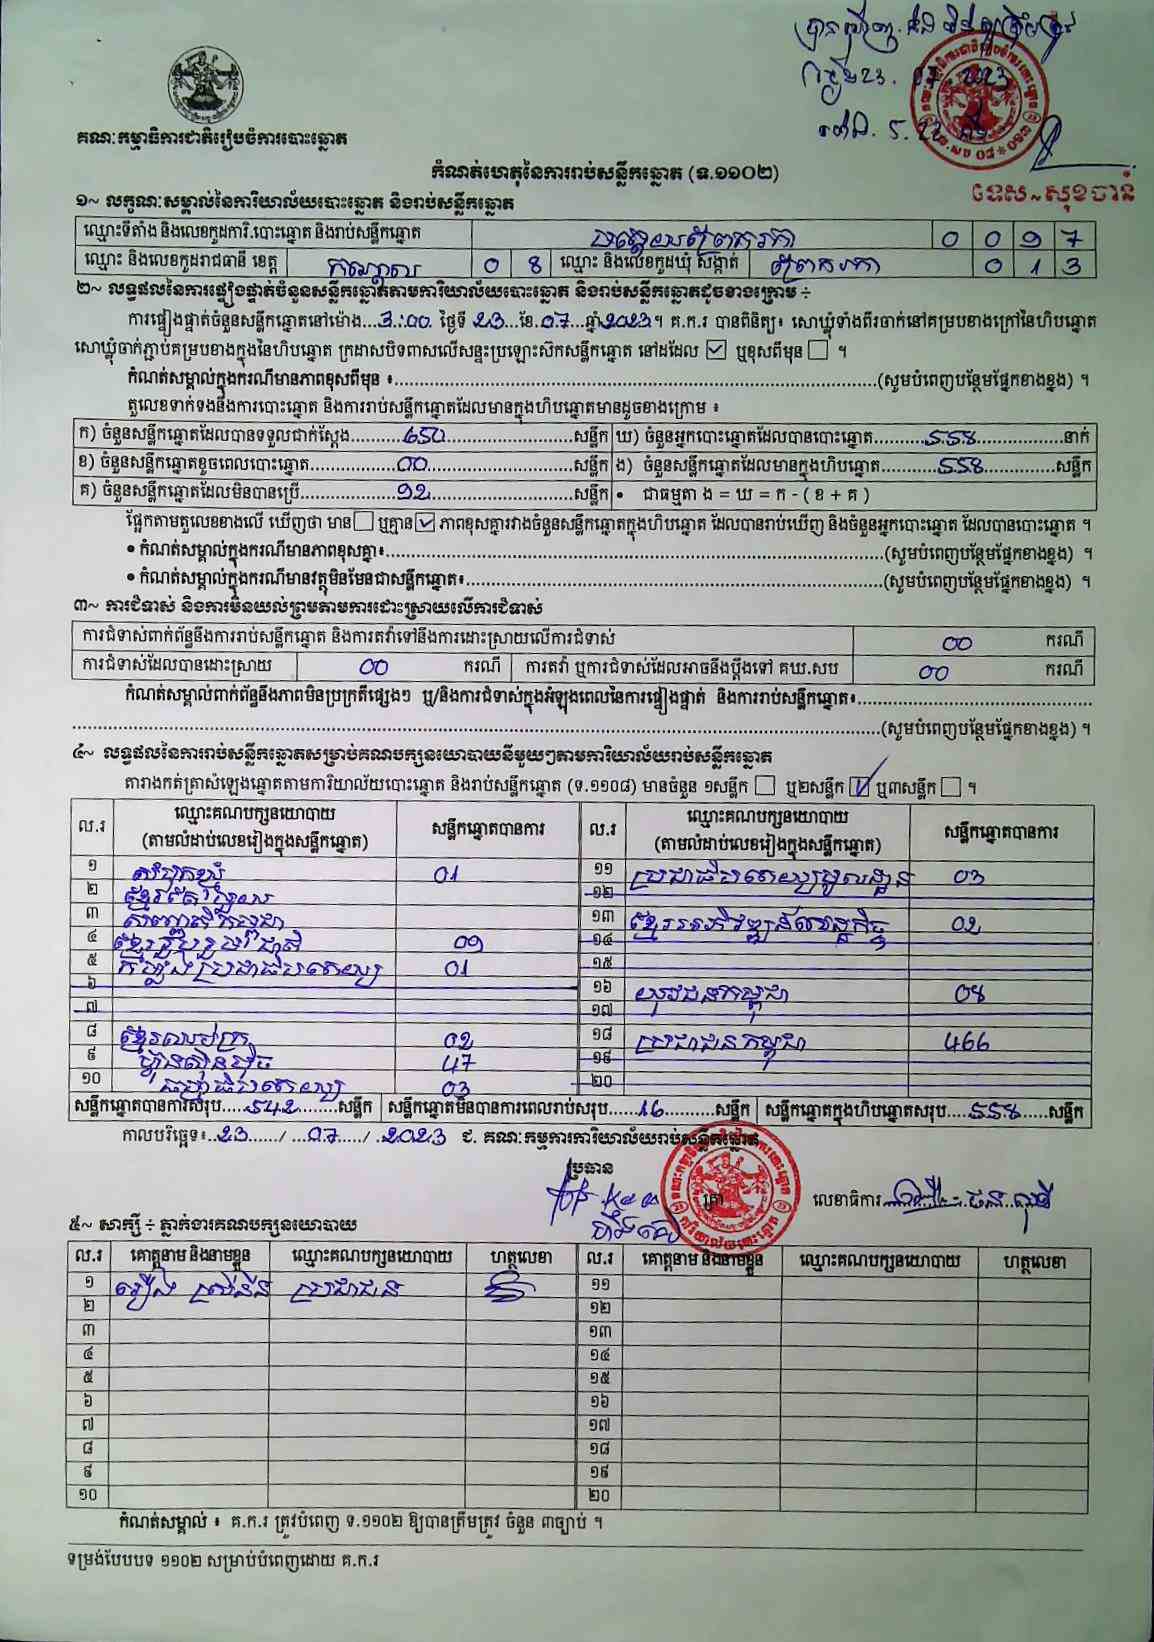 គណៈកម្មាធិការជាតិរៀបចំការបោះឆ្នោត
ទេស~សុខចាន់
កំណត់ហេតុនៃការរាប់សន្លឹកឆ្នោត (ទ.១១០២)
១~ លក្ខណៈសម្គាល់នៃការិយាល័យបោះឆ្នោត និងរាប់សន្លឹកឆ្នោត
ឈ្មោះទីតាំង និងលេខកូដការិ.បោះឆ្នោត និងរាប់សន្លឹកឆ្នោត 0 0 ១ ៧
ឈ្មោះ និងលេខកូដរាជធានី ខេត្ត កណ្តាល 0 8 ឈ្មោះ និងលេខកូដឃុំ សង្កាត់ 0 1 3
២~ លទ្ធផលនៃការផ្ទៀងផ្ទាត់ចំនួនសន្លឹកឆ្នោតតាមការិយាល័យបោះឆ្នោត និងរាប់សន្លឹកឆ្នោតដូចខាងក្រោម ÷
ការផ្ទៀងផ្ទាត់ចំនួនសន្លឹកឆ្នោតនៅម៉ោង...3:00. ថ្ងៃទី 23...ខែ.07...ឆ្នាំ2023។ គ.ក.រ បានពិនិត្យ៖ សោឃ្លុំទាំងពីរចាក់នៅគម្របខាងក្រៅនៃហិបឆ្នោត
សោឃ្លុំចាក់ភ្ជាប់គម្របខាងក្នុងនៃហិបឆ្នោត ក្រដាសបិទពាសលើសន្ទះប្រឡោះស៊កសន្លឹកឆ្នោត នៅដដែល ☑ ឬខុសពីមុន ☐ ។
កំណត់សម្គាល់ក្នុងករណីមានភាពខុសពីមុន ៖..........(សូមបំពេញបន្ថែមផ្នែកខាងខ្នង) ។
តួលេខទាក់ទងនឹងការបោះឆ្នោត និងការរាប់សន្លឹកឆ្នោតដែលមានក្នុងហិបឆ្នោតមានដូចខាងក្រោម ៖
ក) ចំនួនសន្លឹកឆ្នោតដែលបានទទួលជាក់ស្តែង..........650..........សន្លឹក ឃ) ចំនួនអ្នកបោះឆ្នោតដែលបានបោះឆ្នោត..........558..........នាក់
ខ) ចំនួនសន្លឹកឆ្នោតខូចពេលបោះឆ្នោត..........00..........សន្លឹក ង) ចំនួនសន្លឹកឆ្នោតដែលមានក្នុងហិបឆ្នោត..........558..........សន្លឹក
គ) ចំនួនសន្លឹកឆ្នោតដែលមិនបានប្រើ..........92..........សន្លឹក • ជាធម្មតា ង = ឃ = ក - ( ខ + គ )
ផ្អែកតាមតួលេខខាងលើ ឃើញថា មាន ☐ ឬគ្មាន ☑ ភាពខុសគ្នារវាងចំនួនសន្លឹកឆ្នោតក្នុងហិបឆ្នោត ដែលបានរាប់ឃើញ និងចំនួនអ្នកបោះឆ្នោត ដែលបានបោះឆ្នោត ។
• កំណត់សម្គាល់ក្នុងករណីមានភាពខុសគ្នា៖..........(សូមបំពេញបន្ថែមផ្នែកខាងខ្នង) ។
• កំណត់សម្គាល់ក្នុងករណីមានវត្ថុមិនមែនជាសន្លឹកឆ្នោត៖..........(សូមបំពេញបន្ថែមផ្នែកខាងខ្នង) ។
៣~ ការជំទាស់ និងការមិនយល់ព្រមតាមការដោះស្រាយលើការជំទាស់
ការជំទាស់ពាក់ព័ន្ធនឹងការរាប់សន្លឹកឆ្នោត និងការតវ៉ាទៅនឹងការដោះស្រាយលើការជំទាស់ 00 ករណី
ការជំទាស់ដែលបានដោះស្រាយ 00 ករណី ការតវ៉ា ឬការជំទាស់ដែលអាចនឹងប្តឹងទៅ គឃ.សប 00 ករណី
កំណត់សម្គាល់ពាក់ព័ន្ធនឹងភាពមិនប្រក្រតីផ្សេងៗ ឬ/និងការជំទាស់ក្នុងអំឡុងពេលនៃការផ្ទៀងផ្ទាត់ និងការរាប់សន្លឹកឆ្នោត៖..........
..........(សូមបំពេញបន្ថែមផ្នែកខាងខ្នង) ។
៤~ លទ្ធផលនៃការរាប់សន្លឹកឆ្នោតសម្រាប់គណបក្សនយោបាយនីមួយៗតាមការិយាល័យរាប់សន្លឹកឆ្នោត
តារាងកត់ត្រាសំឡេងឆ្នោតតាមការិយាល័យបោះឆ្នោត និងរាប់សន្លឹកឆ្នោត (ទ.១១០៨) មានចំនួន ១សន្លឹក ☐ ឬ២សន្លឹក ☑ ឬ៣សន្លឹក ☐ ។
ល.រ ឈ្មោះគណបក្សនយោបាយ (តាមលំដាប់លេខរៀងក្នុងសន្លឹកឆ្នោត) សន្លឹកឆ្នោតបានការ ល.រ ឈ្មោះគណបក្សនយោបាយ (តាមលំដាប់លេខរៀងក្នុងសន្លឹកឆ្នោត) សន្លឹកឆ្នោតបានការ
១ 01 ១១ ប្រជាធិបតេយ្យមូលដ្ឋាន 03
២ ១២
៣ ១៣ ខ្មែរអភិវឌ្ឍន៍សេដ្ឋកិច្ច 02
៤ ខ្មែររួបរួមជាតិ 09 ១៤
៥ កម្លាំងប្រជាធិបតេយ្យ 01 ១៥
៦ ១៦ យុវជនកម្ពុជា 04
៧ ១៧
៨ ខ្មែរឈប់ក្រ 02 ១៨ ប្រជាជនកម្ពុជា 466
៩ ហ្វ៊ុនស៊ិនប៉ិច 47 ១៩
១០ 03 ២០
សន្លឹកឆ្នោតបានការសរុប.....542........សន្លឹក សន្លឹកឆ្នោតមិនបានការពេលរាប់សរុប......16..........សន្លឹក សន្លឹកឆ្នោតក្នុងហិបឆ្នោតសរុប.....558......សន្លឹក
កាលបរិច្ឆេទ៖..23....../ ...07...../ .2023 ជ. គណៈកម្មការការិយាល័យរាប់សន្លឹកឆ្នោត
ប្រធាន ត្រា លេខាធិការ
៥~ សាក្សី ÷ ភ្នាក់ងារគណបក្សនយោបាយ
ល.រ គោត្តនាម និងនាមខ្លួន ឈ្មោះគណបក្សនយោបាយ ហត្ថលេខា ល.រ គោត្តនាម និងនាមខ្លួន ឈ្មោះគណបក្សនយោបាយ ហត្ថលេខា
១ ប្រជាជន ១១
២ ១២
៣ ១៣
៤ ១៤
៥ ១៥
៦ ១៦
៧ ១៧
៨ ១៨
៩ ១៩
១០ ២០
កំណត់សម្គាល់ ៖ គ.ក.រ ត្រូវបំពេញ ទ.១១០២ ឱ្យបានត្រឹមត្រូវ ចំនួន ៣ច្បាប់ ។
ទម្រង់បែបបទ ១១០២ សម្រាប់បំពេញដោយ គ.ក.រ